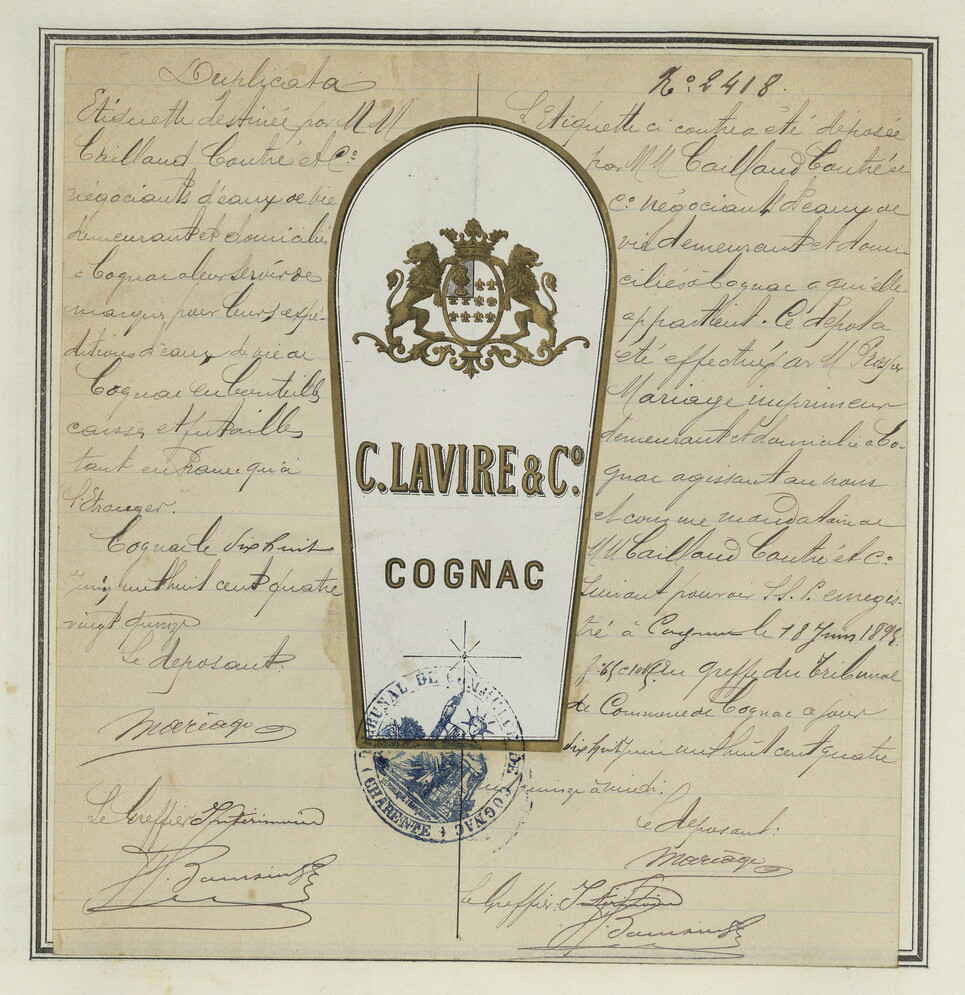 Duplicata
Etiquette destinée par MM
Caillaud Coutré et Cº
négociants d'eaux de vie
demeurant et domiciliés
à Cognac a leur servir de
marque pour leurs expé-
ditions d'eaux de vie de
Cognac en bouteilles
caisses et futailles
tant en France qu'à
l'Etranger.
Cognac le dix huit
juin mil huit cent quatre
vingt quinze
Le deposant.
Mariage
Le Greffier Intérimaire
Nº 2418.
L'Etiquette ci contre a été déposée
par MM Caillaud Coutré et
Cº négociants d'eaux de
vie demeurant et domi-
ciliés à Cognac a qui elle
appartient. Ce dépot a
été effectué par M Prosper
Mariage imprimeur
demeurant et domicilié à Co-
gnac agissant au nom
et comme mandataire de
MM Caillaud Coutré et Cº
suivant pouvoir SS. P. enregis-
tré à Cognac le 18 Juin 1895
au greffe du Tribunal
de Commerce de Cognac ce jour
dix huit juin mil huit cent quatre
vingt quinze à midi.
Le deposant:
Mariage
Le Greffier Intérimaire
C. LAVIRE & Cº
COGNAC
TRIBUNAL DE COMMERCE DE COGNAC
(CHARENTE)